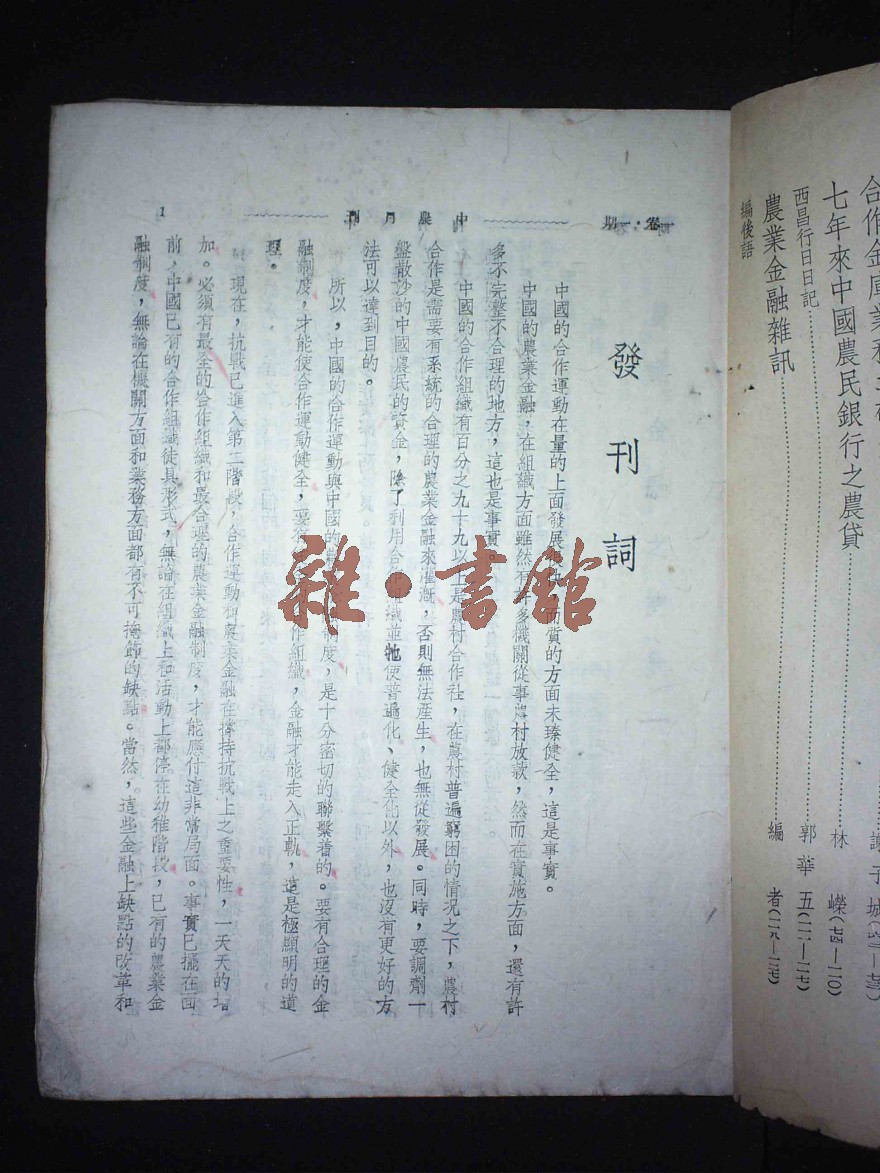 合作金庫業務之
七年來中國農民銀行之農貸 林嶸
西昌行日日記 郭華五
農業金融雜訊
編後語 編者
一卷・一期
中農月刊
1
發刊詞
中國的合作運動在量的上面發展 而質的方面未臻健全，這是事實。
中國的農業金融，在組織方面雖然有許多機關從事農村放款，然而在實施方面，還有許
多不完整不合理的地方，這也是事實。
中國的合作組織有百分之九十九以上是農村合作社，在農村普遍窮困的情况之下，農村
合作是需要有系統的合理的農業金融來灌漑，否則無法產生，也無從發展。同時，要調劑一
盤散沙的中國農民的資金，除了利用合作組織並牠使普遍化、健全化以外，也沒有更好的方
法可以達到目的。
所以，中國的合作運動與中國的 制度，是十分密切的聯繫着的。要有合理的金
融制度，才能使合作運動健全，要 作組織，金融才能走入正軌，這是極顯明的道
理。
現在，抗戰已進入第二階段，合作運動和農業金融在撑持抗戰上之重要性，一天天的增
加。必須有最全的合作組織和最合理的農業金融制度，才能應付這非常局面。事實已擺在面
前，中國已有的合作組織徒具形式，無論在組織上和活動上都停在幼稚階段，已有的農業金
融制度，無論在機關方面和業務方面都有不可掩飾的缺點。當然，這些金融上缺點的改革和
雜・書館